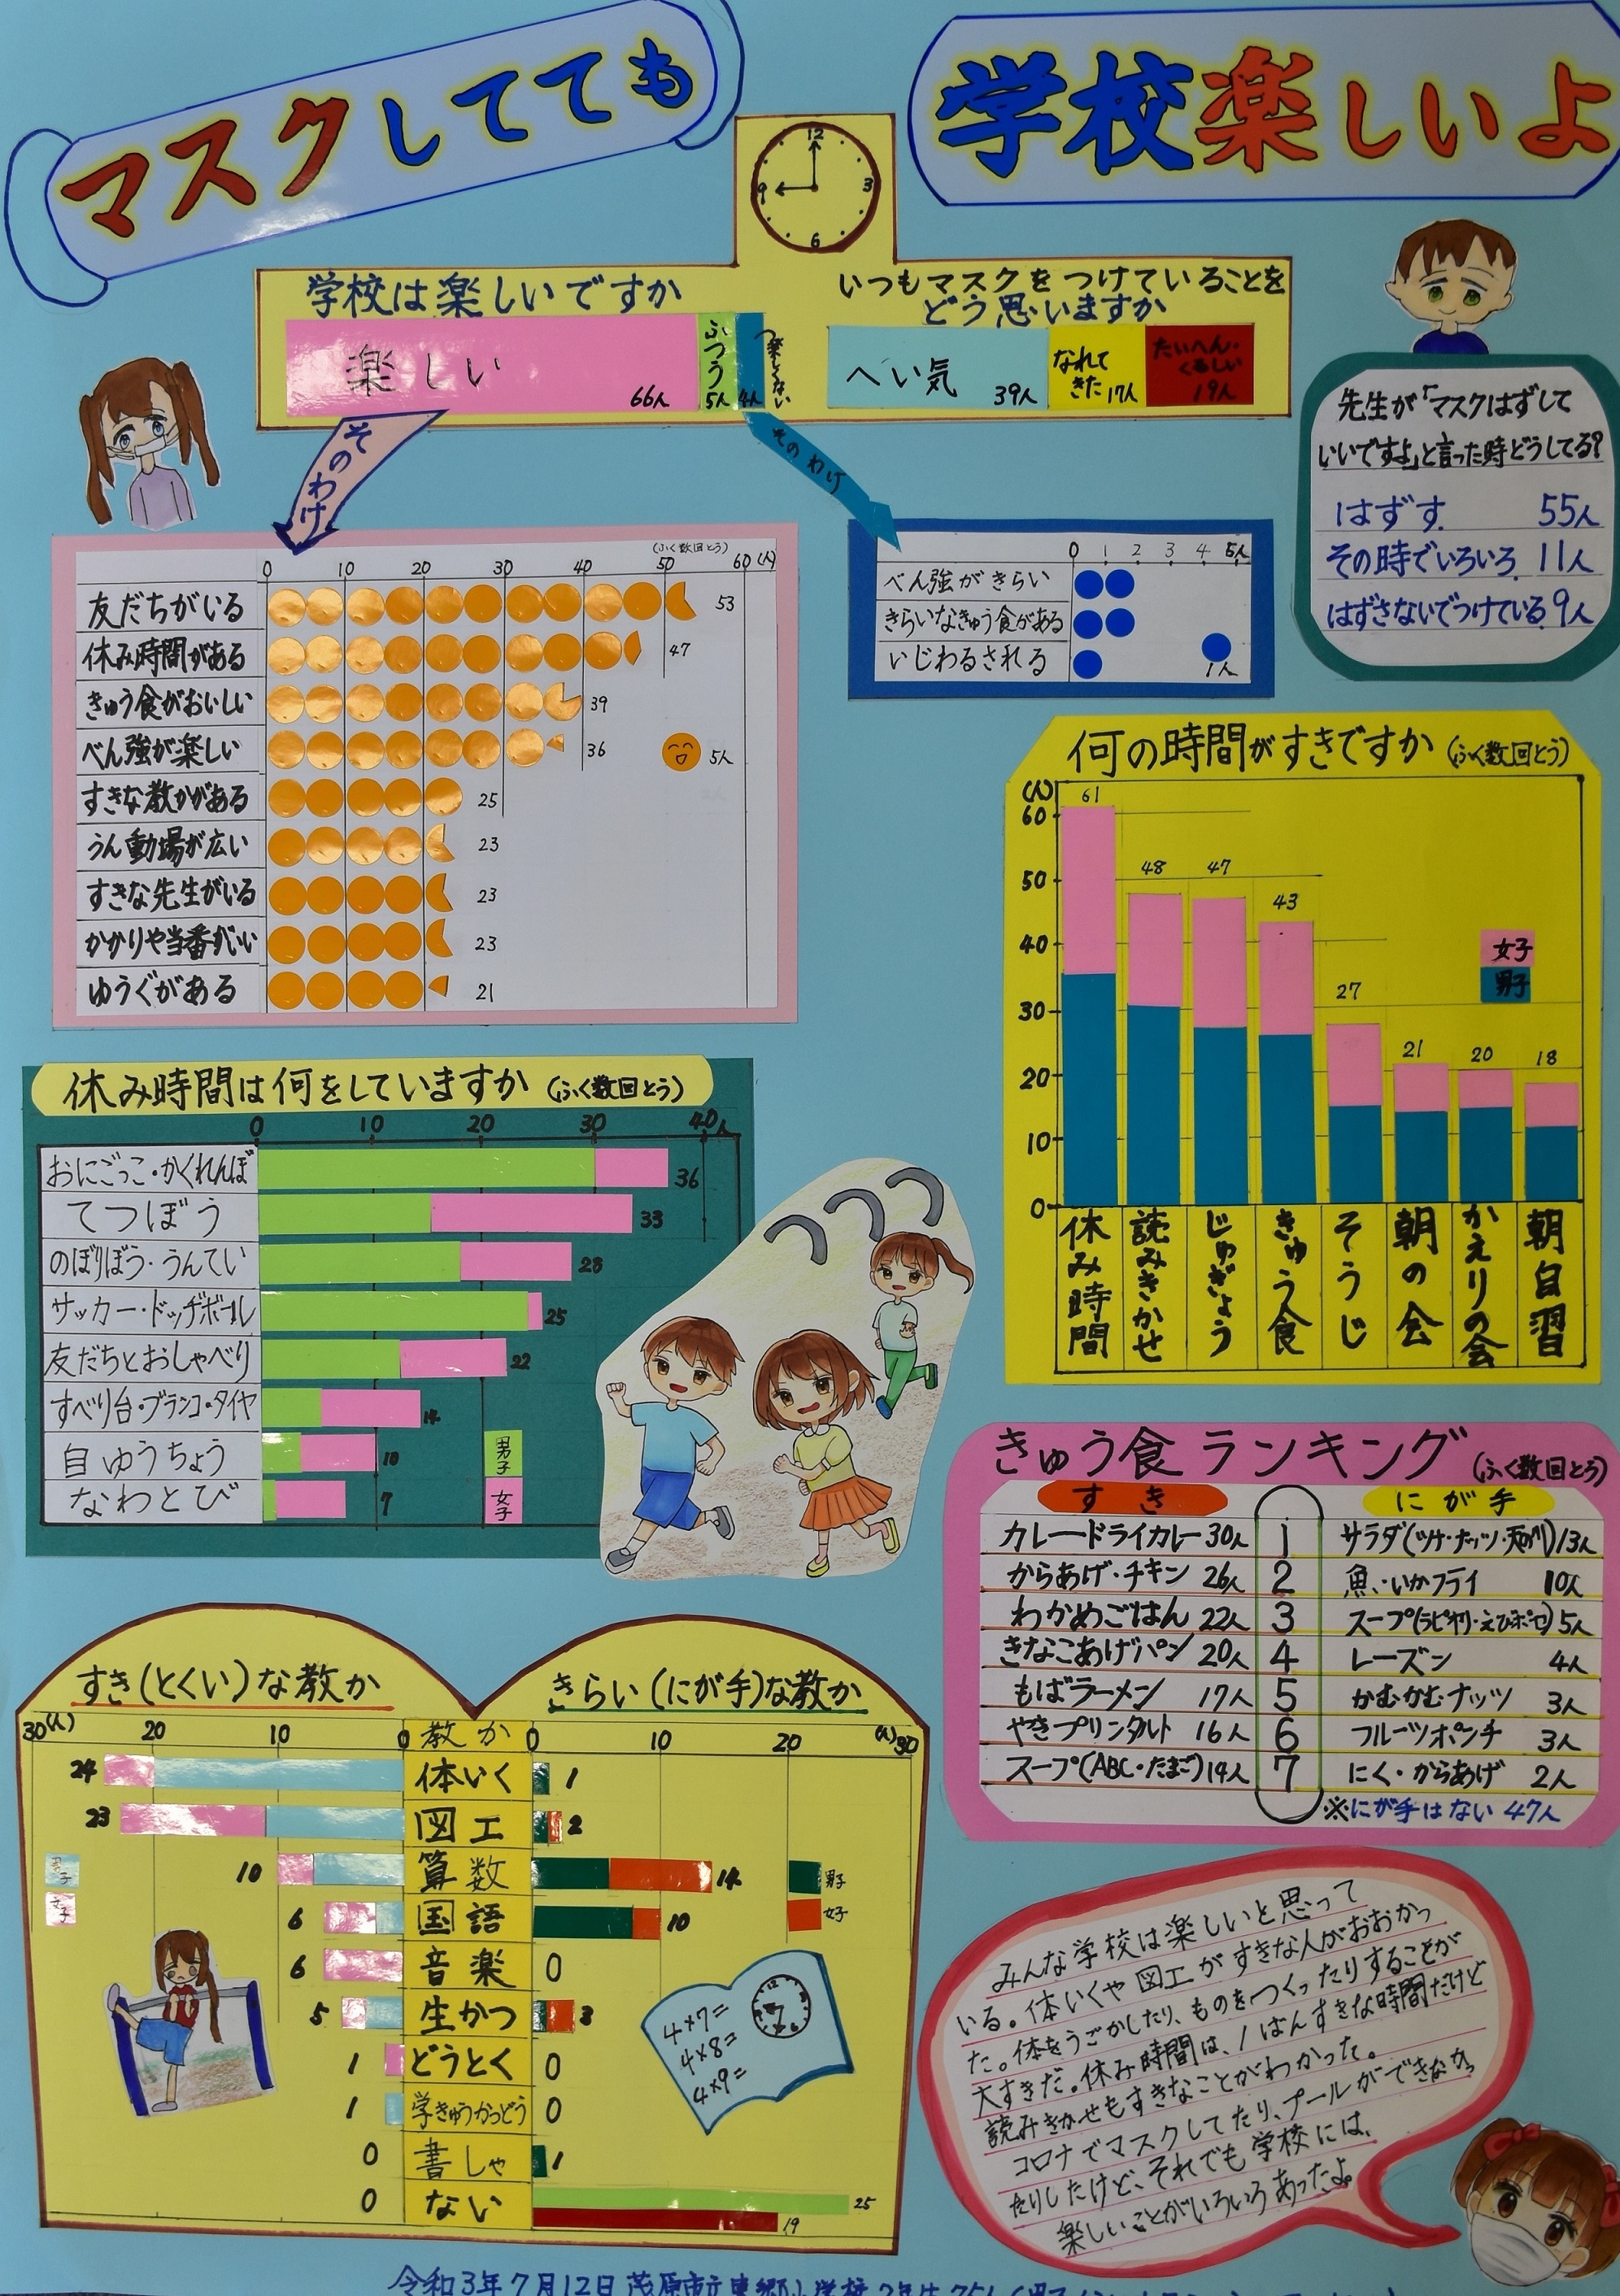 マスクしてても
学校楽しいよ
12
3
6
9
学校は楽しいですか
楽しい 66人
ふつう 5人
楽しくない 4人
いつもマスクをつけていることを
どう思いますか
へい気 39人
なれて
きた 17人
たいへん・
くるしい
19人
先生が「マスクはずして
いいですよ」と言った時どうしてる?
はずす 55人
その時でいろいろ 11人
はずさないでつけている 9人
そのわけ
そのわけ
(ふく数回とう)
0 10 20 30 40 50 60(人)
友だちがいる 53
休み時間がある 47
きゅう食がおいしい 39
べん強が楽しい 36
5人
すきな教かがある 25
うん動場が広い 23
すきな先生がいる 23
かかりや当番がいい 23
ゆうぐがある 21
0 1 2 3 4 5人
べん強がきらい
きらいなきゅう食がある
いじわるされる
1人
何の時間がすきですか (ふく数回とう)
(人)
60
50
40
30
20
10
0
61 48 47 43 27 21 20 18
女子
男子
休み時間
読みきかせ
じゅぎょう
きゅう食
そうじ
朝の会
かえりの会
朝自習
休み時間は何をしていますか (ふく数回とう)
0 10 20 30 40人
おにごっこ・かくれんぼ 36
てつぼう 33
のぼりぼう・うんてい 28
サッカー・ドッヂボール 25
友だちとおしゃべり 22
すべり台・ブランコ・タイヤ 14
自ゆうちょう 10
なわとび 7
男子
女子
きゅう食ランキング (ふく数回とう)
すき にが手
カレー・ドライカレー 30人 1 サラダ(ツナ・ナッツ・天の川) 13人
からあげ・チキン 26人 2 魚・いかフライ 10人
わかめごはん 22人 3 5人
きなこあげパン 20人 4 レーズン 4人
もばラーメン 17人 5 かむかむナッツ 3人
やきプリンタルト 16人 6 フルーツポンチ 3人
スープ(ABC・たまご) 14人 7 にく・からあげ 2人
※にが手はない 47人
すき(とくい)な教か
きらい(にが手)な教か
30(人) 20 10 0 教か 0 10 20 (人)30
24 体いく 1
23 図工 2
10 算数 14
6 国語 10
6 音楽 0
5 生かつ 3
1 どうとく 0
1 学きゅうかつどう 0
0 書しゃ 1
0 ない 25
19
男子
女子
男子
女子
4×7=
4×8=
4×9=
12
みんな学校は楽しいと思って
いる。体いくや図工がすきな人がおおかっ
た。体をうごかしたり、ものをつくったりすることが
大すきだ。休み時間は、1ばんすきな時間だけど
読みきかせもすきなことがわかった。
コロナでマスクしてたり、プールができなかっ
たりしたけど、それでも学校には、
楽しいことがいろいろあったよ。
令和3年7月12日 茂原市立東郷小学校 2年生 75人